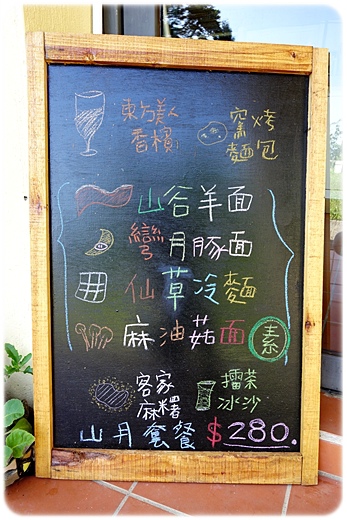 東方美人
香檳
窯烤
麵包
山谷羊面
彎月豚面
仙草冷麵
麻油菇面 素
客家
麻糬
擂茶
冰沙
山月套餐 $280.